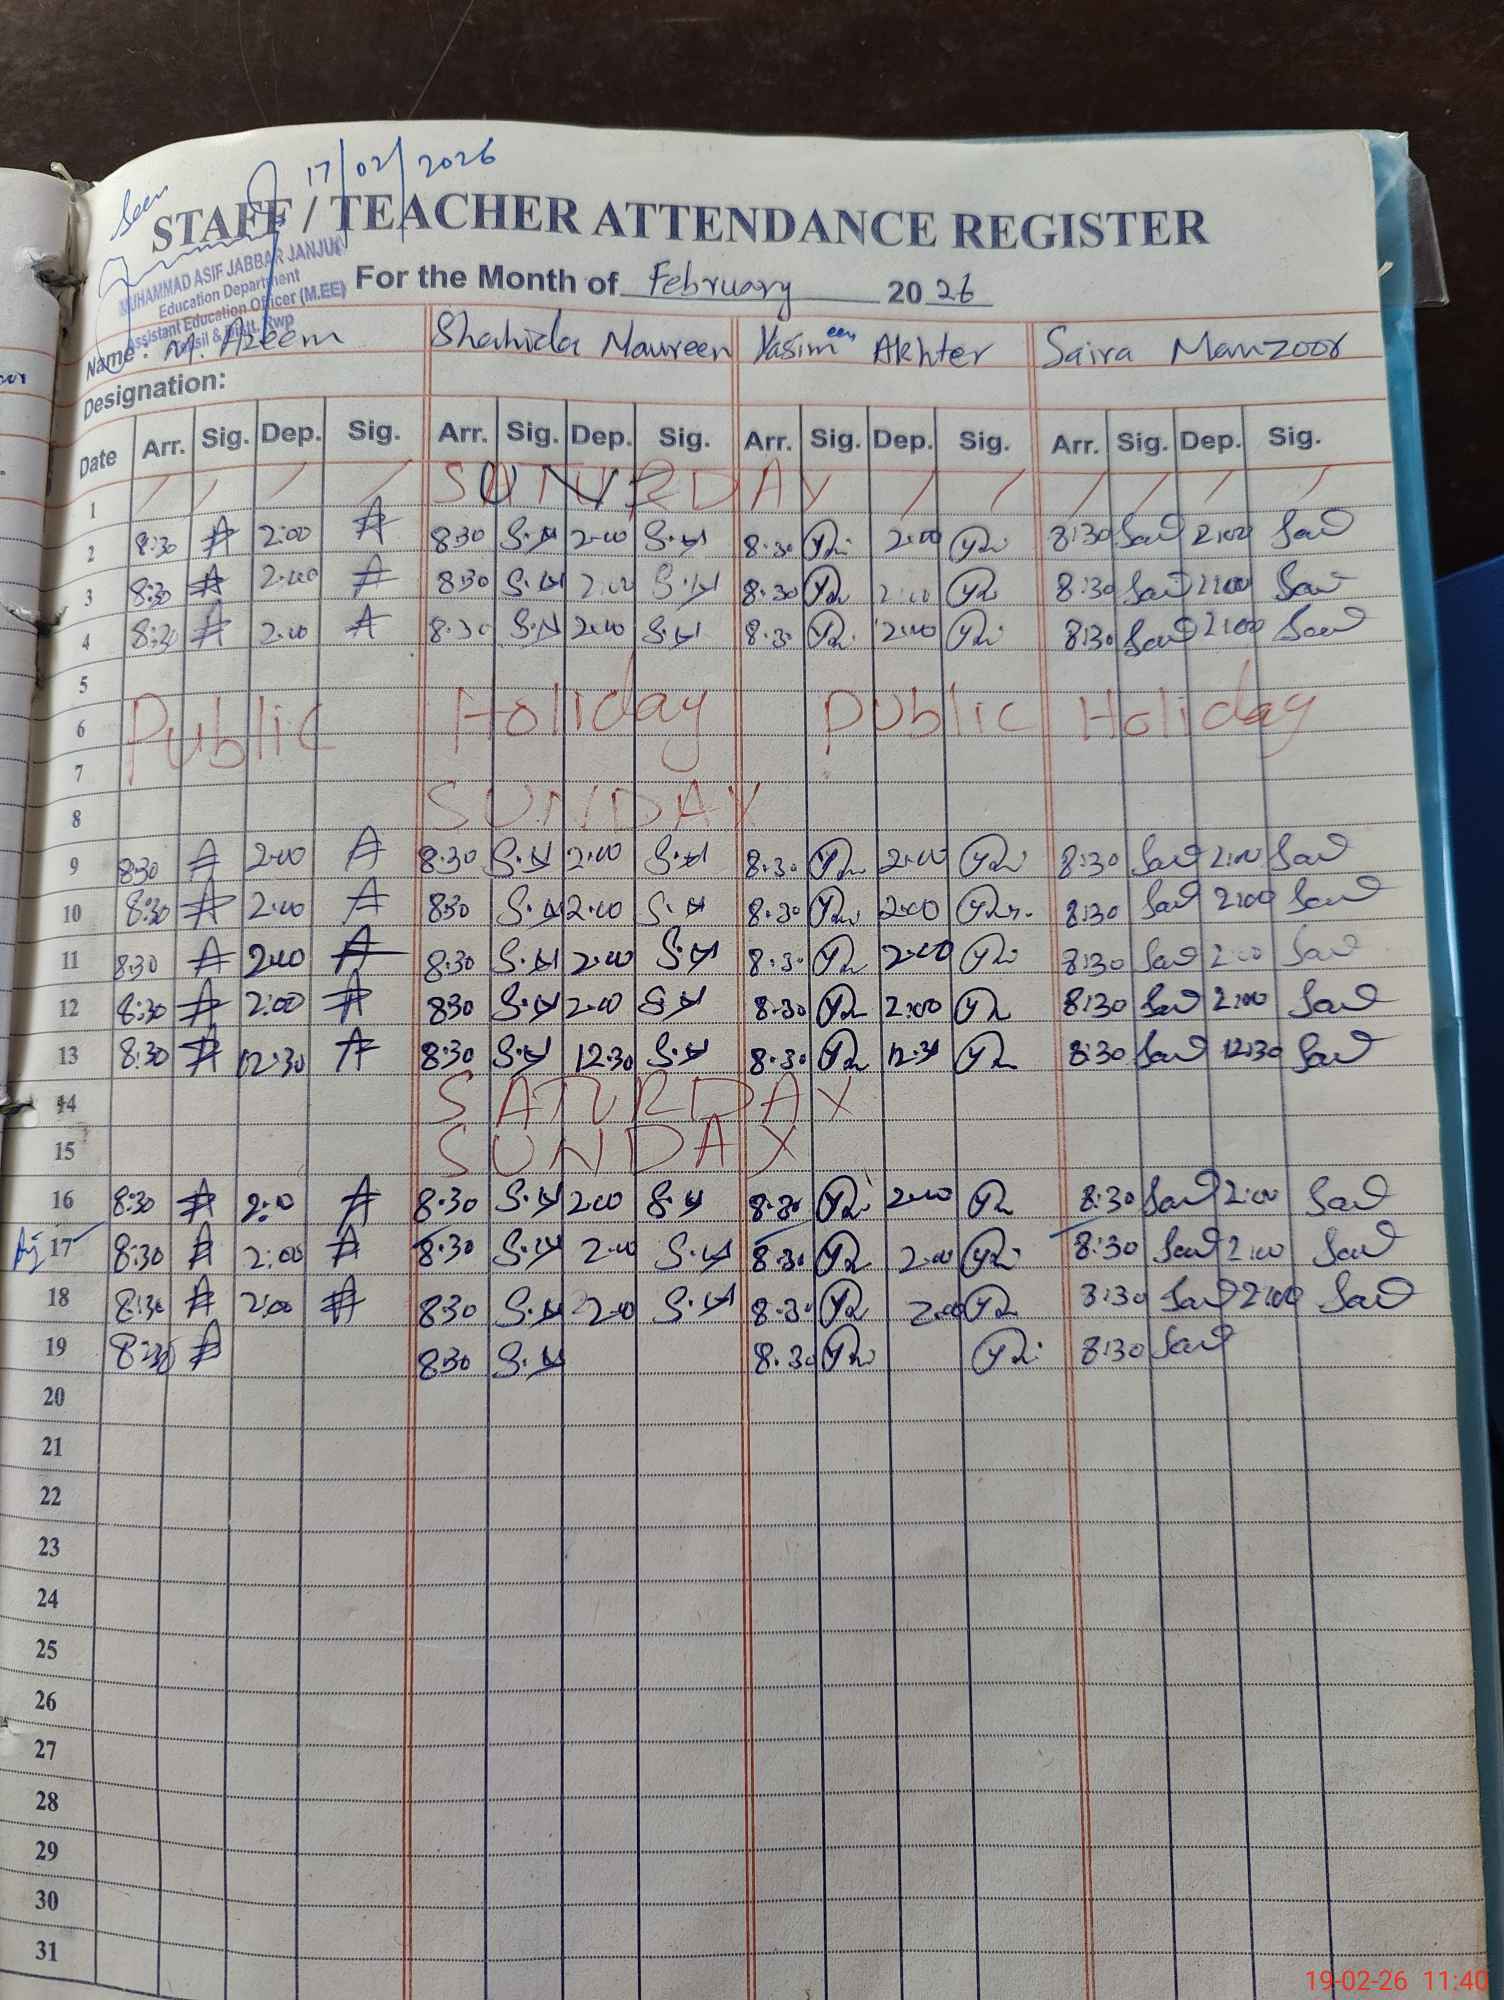 Seen 17/02/2026
STAFF / TEACHER ATTENDANCE REGISTER
MUHAMMAD ASIF JABBAR JANJUA
Education Department
Assistant Education Officer (M.EE)
Tehsil & Distt. Rwp
For the Month of February 2026
Name: M. Azeem Shahida Noureen Yasimeen Akhter Saira Manzoor
Designation:
Date Arr. Sig. Dep. Sig. Arr. Sig. Dep. Sig. Arr. Sig. Dep. Sig. Arr. Sig. Dep. Sig.
1
2 8:30 A 2:00 A 8:30 S.N 2:00 S.N 8:30 2:00 8:30 2:00
3 8:30 A 2:00 A 8:30 S.N 2:00 S.N 8:30 2:00 8:30 2:00
4 8:30 A 2:00 A 8:30 S.N 2:00 S.N 8:30 2:00 8:30 2:00
5
6 Public Holiday Public Holiday
7
8 SUNDAY
9 8:30 A 2:00 A 8:30 S.N 2:00 S.N 8:30 2:00 8:30 2:00
10 8:30 A 2:00 A 8:30 S.N 2:00 S.N 8:30 2:00 8:30 2:00
11 8:30 A 2:00 A 8:30 S.N 2:00 S.N 8:30 2:00 8:30 2:00
12 8:30 A 2:00 A 830 S.N 2:00 S.N 8:30 2:00 8:30 2:00
13 8:30 A 12:30 A 8:30 S.N 12:30 S.N 8:30 12:30 8:30 12:30
14 SATURDAY
15 SUNDAY
16 8:30 A 2:00 A 8:30 S.N 2:00 S.N 8:30 2:00 8:30 2:00
17 8:30 A 2:00 A 8:30 S.N 2:00 S.N 8:30 2:00 8:30 2:00
18 8:30 A 2:00 A 8:30 S.N 2:00 S.N 8:30 2:00 8:30 2:00
19 8:30 A 8:30 S.N 8:30 8:30
20
21
22
23
24
25
26
27
28
29
30
31
19-02-26 11:40